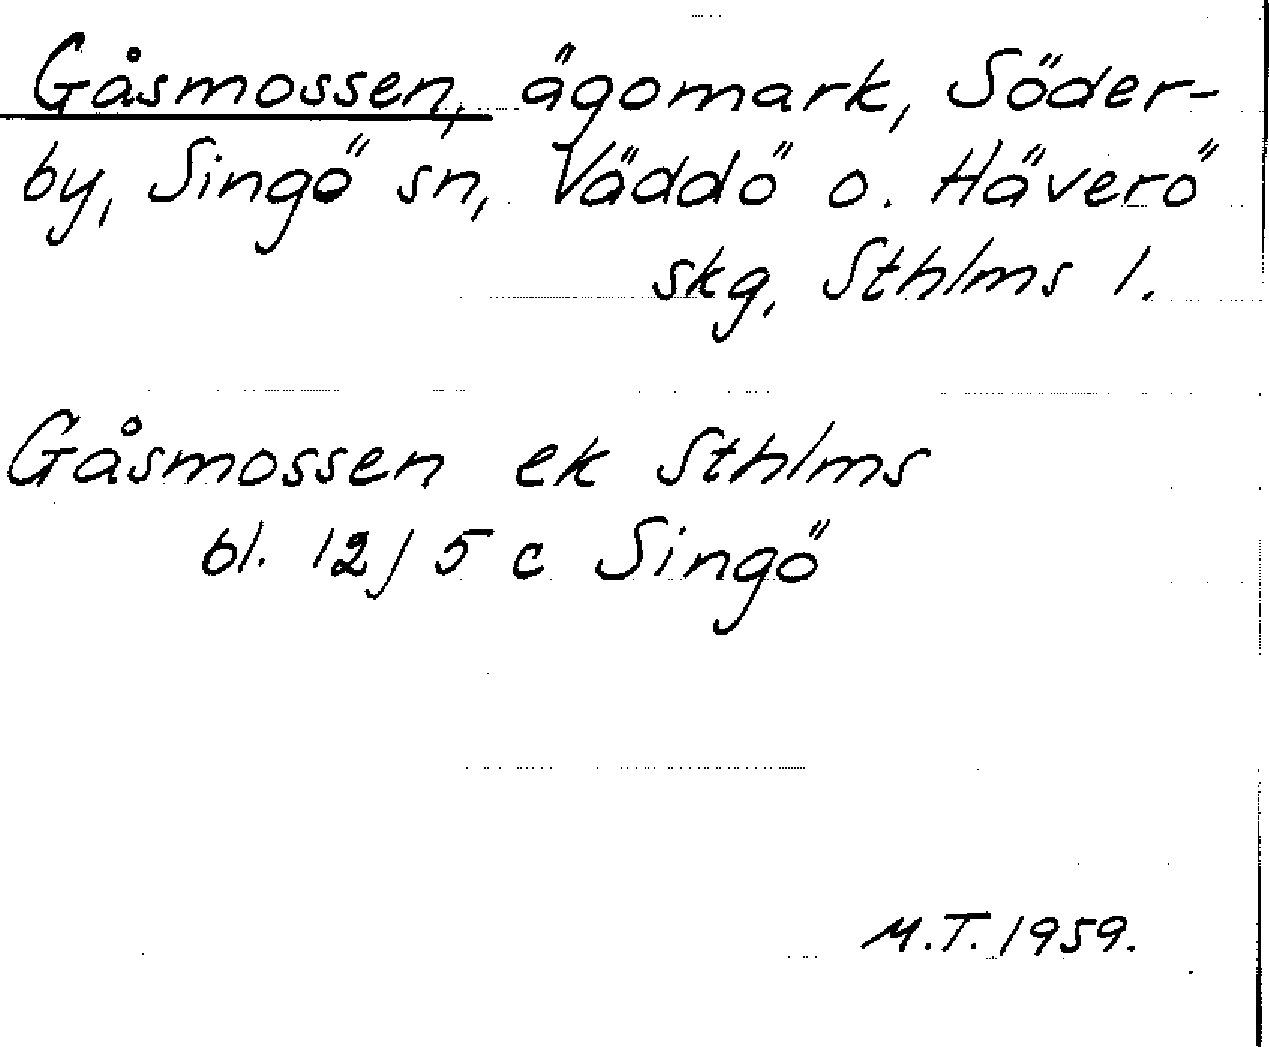 Gåsmossen, ägomark, Söder-
by, Singö sn, Väddö o. Häverö
skg, Sthlms l.
Gåsmossen ek Sthlms
bl. 12/5 c Singö
M.T. 1959.